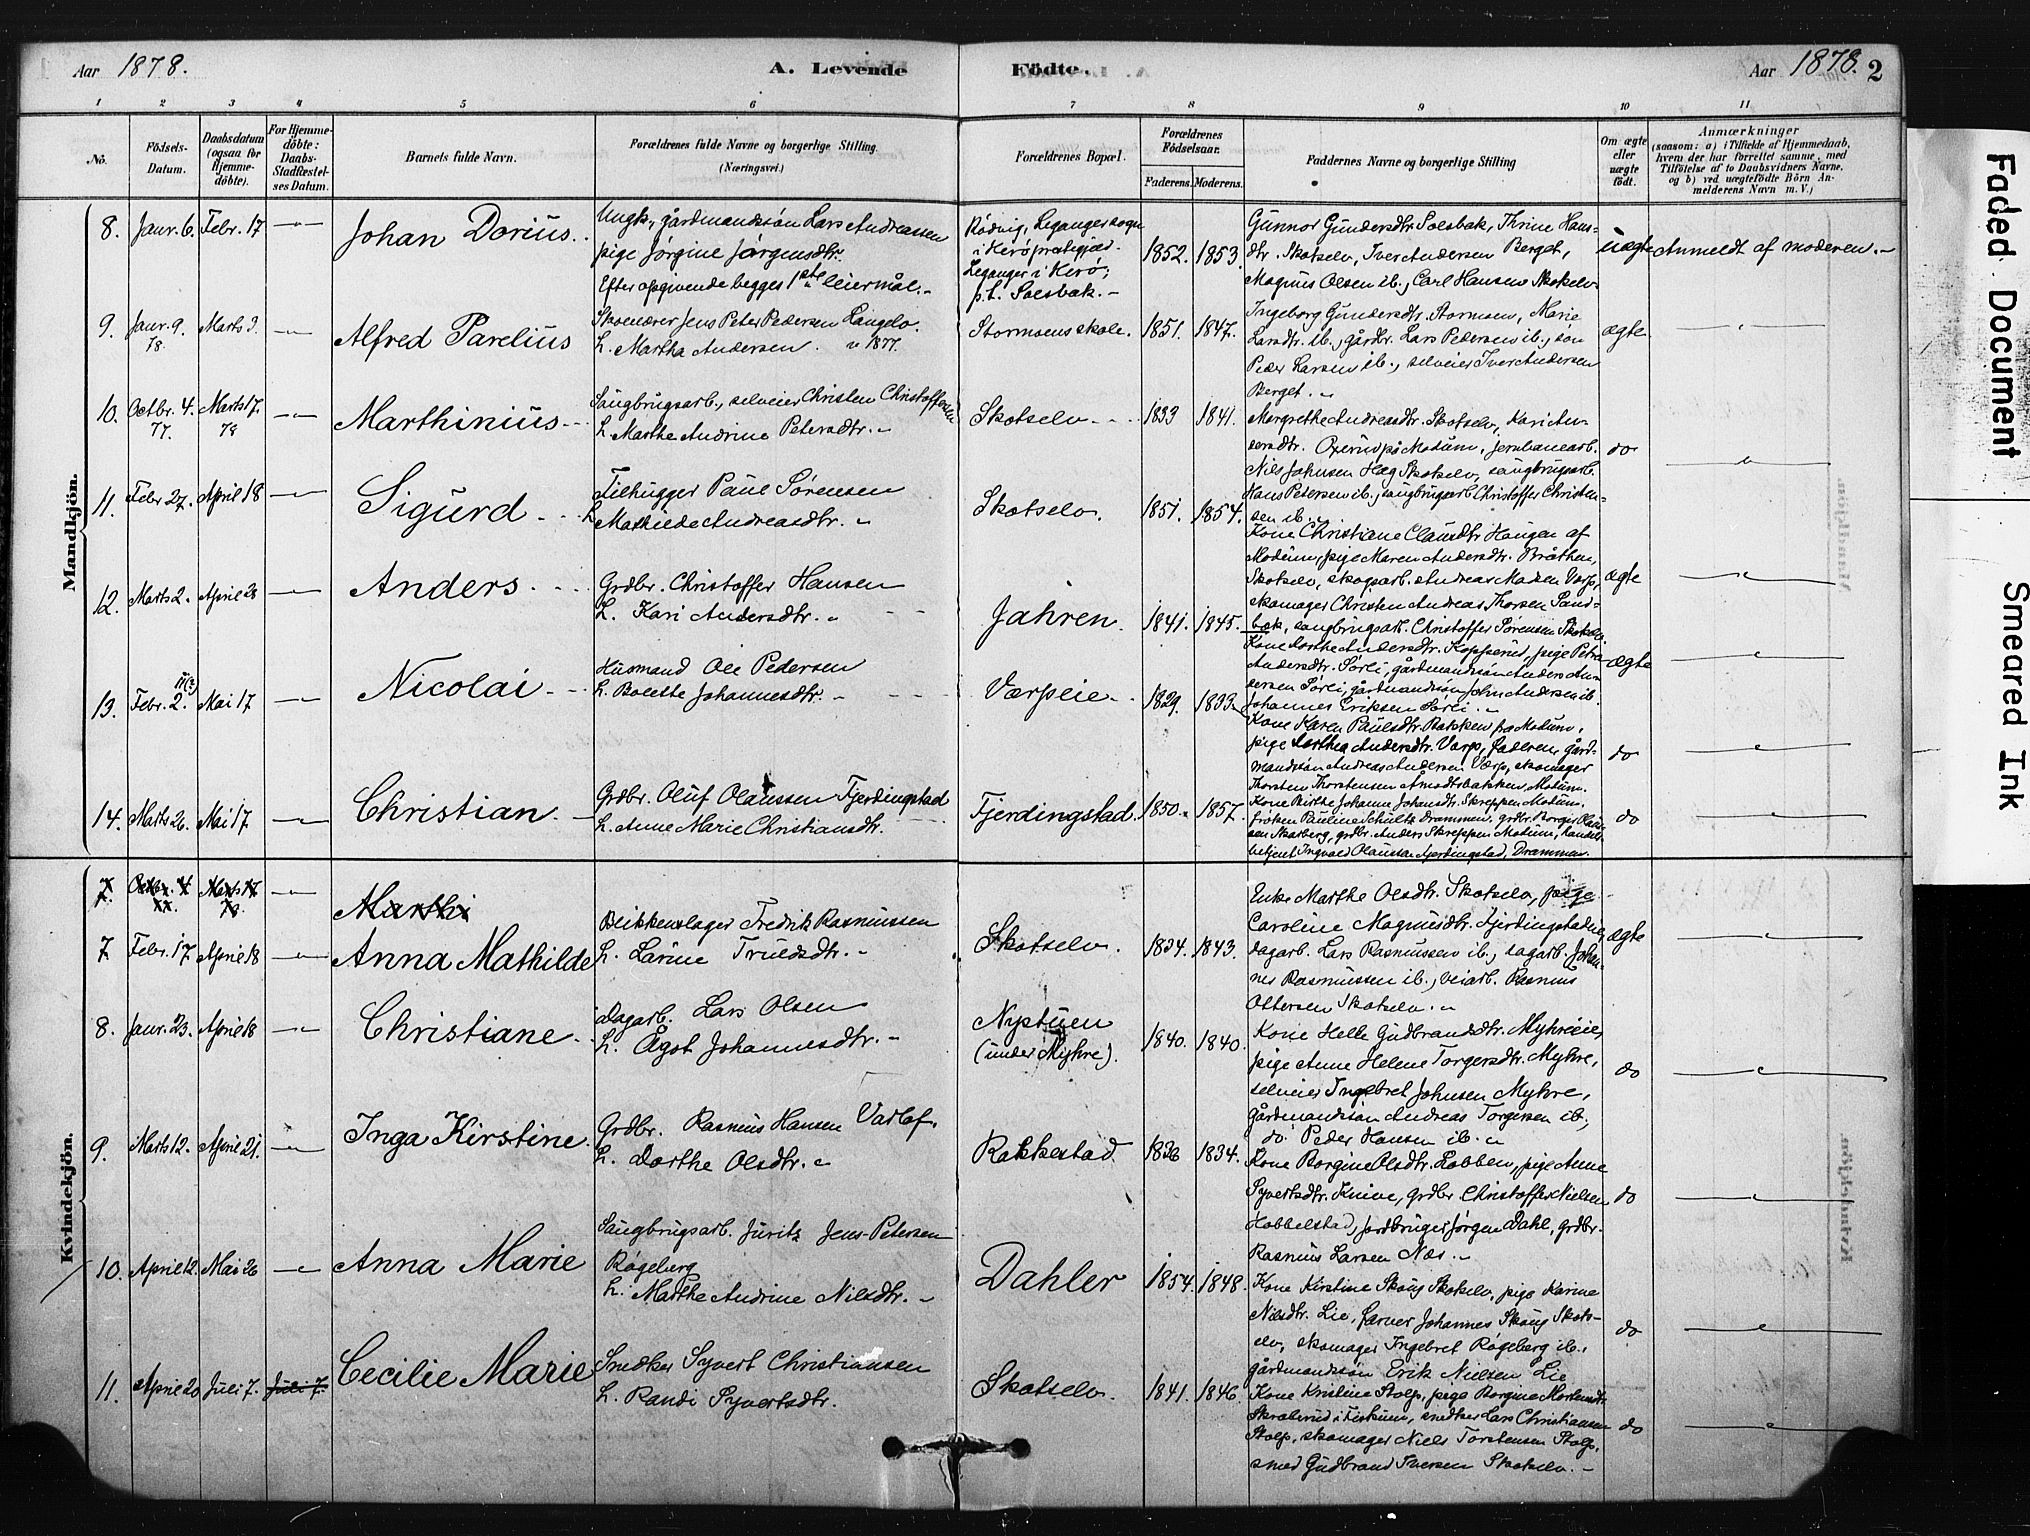 Aar 1878.
A. Levende Födte.
Aar 1878. 2
1 2 3 4 5 6 7 8 9 10 11
No.
Födsels-Datum.
Daabsdatum (ogsaa for Hjemme-döbte).
For Hjemme-döbte: Daabs-Stadfæstel-ses Datum.
Barnets fulde Navn.
Forældrenes fulde Navne og borgerlige Stilling.
(Næringsvei.)
Forældrenes Bopæl.
Forældrenes Födselsaar.
Faderens. Moderens.
Faddernes Navne og borgerlige Stilling
Om ægte eller uægte födt.
Anmærkninger
(saasom: a) i Tilfælde af Hjemmedaab,
hvem der har forrettet samme, med
Tilföielse af to Daabsvidners Navne,
og b) ved uægtefödte Börn An-
melderens Navn m. V.)
Mandkjön.
8. Janr. 6. Febr. 17 Johan Dorius.
Ungk., gårdmandssön Lars Andreassen
pige Jørgine Jørgensdtr.
Efter opgivende begges 1ste leiermål.
Rödvig, Leganger sogn
i Herö præstegjæld.
Leganger i Herö;
p.t. Solsbak.
1852. 1853.
Gunnor Gundersdtr. Solsbak, Thrine Hans-
dtr. Skotselv, Iver Andersen Berget,
Magnus Olsen ib., Carl Hansen Skotselv
uægte Anmeldt af moderen.
9. Janr. 9. 78. Marts 3. Alfred Parelius
Skolelærer Jens Peter Pedersen Langelo.
h. Martha Andersen. v 1877.
Stormoens skole. 1851. 1847.
Ingeborg Gundersdtr. Stormoen, Marie
Larsdtr. ib., gårdbr. Lars Pedersen ib., sön
Peder Larsen ib., selveier Iver Andersen
Berget.
ægte
10. Octbr. 4. 77. Marts 17. 78 Marthinius
Saugbrugsarb., selveier Christen Christoffersen
h. Marthe Andrine Petersdtr.
Skotselv 1833 1841.
Margrethe Andreasdtr. Skotselv, Kari An-
dersdtr. på Modum, jernbanearb.
Nils Johnsen Hæg Skotselv, saugbrugsarb.
Hans Petersen ib., saugbrugsarb. Christoffer Christen-
sen ib.
do
11. Febr 27. April 18 Sigurd
Tilhugger Paul Sørensen
h. Mathilde Andreasdtr.
Skotselv. 1851. 1854.
Kone Christiane Clausdtr. Haugen af
Modum, pige Maren Andersdtr. Bråthen,
Skotselv, skogsarb. Andreas Madsen Varp,
skomager Christen Andreas Thorsen Sand-
bæk, saugbrugsarb. Christoffer Sørensen Skotselv.
ægte
12. Marts 2. April 28 Anders
Grdbr. Christoffer Hansen
h. Kari Andersdtr.
Jahren. 1841. 1845.
Kone Dorthe Andersdtr. Kopperud, pige Petra
Andersdtr. Sørli, gårdmandssön Anders An-
dersen Sørli, gårdmandssön John Andersen ib.
Johannes Eriksen Sørli.
ægte
13. Febr. 2. Mai 17 Nicolai
Husmand Ole Pedersen
h. Bolette Johannesdtr.
Værpeie 1829. 1833
Kone Karen Paulsdtr. Bakken fra Modum,
pige Dorthea Andersdtr. Varp, faderen, gård-
mandssön Andreas Andersen Værp, skomager
Thorsten Thorstensen Åmodtsbakken Modum.
do
14. Marts 26. Mai 17. Christian
Grdbr. Oluf Olaussen Fjerdingstad
h. Anne Marie Christiansdtr.
Fjerdingstad. 1850. 1857.
Kone Birthe Johanne Johansdtr. Skreppen Modum,
frøken Pauline Schultz Drammen, grdbr. Borger Olaus-
sen Skarberg, grdbr. Anders Skreppen Modum, handels-
betjent Ingvald Olaussen Fjerdingstad, Drammen.
do
Kvindekjön.
7. Octbr. 4 77. Marts 17 78. Marthi
7. Febr. 17. April 18 Anna Mathilde
Blikkenslager Fredrik Rasmussen
h. Larine Truedsdtr.
Skotselv. 1834. 1843.
Enke Marthe Olsdtr. Skotselv, pige
Caroline Magnusdtr. Fjerdingstadeie,
dagarb. Lars Rasmussen ib., sagarb. Johan-
nes Rasmussen ib., veiarb. Rasmus
Ottersen Skotselv.
ægte
8. Janr. 23. April 18 Christiane
Dagarb. Lars Olsen
h. Ågot Johannesdtr.
Nystuen
(under Myhre).
1840. 1840.
Kone Helle Gudbrandsdtr. Myhreeie,
pige Anne Helene Torgersdtr. Myhre,
selveier Ingebret Johnsen Myhre,
gårdmandssön Andreas Torgersen ib.,
do. Peder Hansen ib.
do
9. Marts 12. April 21. Inga Kirstine.
Grdbr. Rasmus Hansen Varlof.
h. Dorthe Olsdtr.
Rakkestad. 1836 1834.
Kone Borgine Olsdtr. Lobben, pige Anne
Syvertsdtr. Knive, grdbr. Christoffer Nielsen
Hobbelstad, jordbruger Jørgen Dahl, grdbr.
Rasmus Larsen Næs.
do
10. April 12. Mai 26 Anna Marie
Saugbrugsarb. Juritz Jens Petersen
Røgeberg
h. Marthe Andrine Nilsdtr.
Dahler 1854. 1848.
Kone Kirstine Skoug Skotselv, pige Karine
Nilsdtr. Lie, farver Johannes Skoug Skots-
elv, skomager Ingebret Røgeberg ib.,
gårdmandssön Erik Nielsen Lie
do
11. April 20 Juli 7. Juli 7. Cecilie Marie
Snedker Syvert Christiansen
h. Randi Syvertsdtr.
Skotselv. 1841. 1846.
Kone Kristine Stolp, pige Borgine Mortensdtr.
Skrabsrud i Fiskum, snedker Lars Christiansen
Stolp, skomager Niels Torstensen Stolp,
smed Gudbrand Iversen Skotselv.
do
Faded Document
Smeared Ink